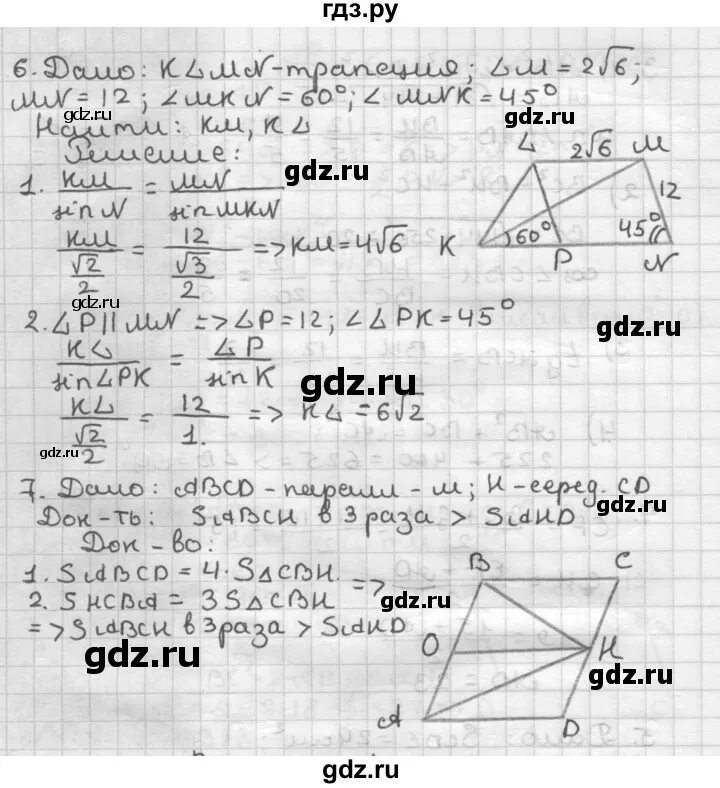 гдз.ру
6. Дано: K∠MN-трапеция; ∠M = 2√6;
MN = 12; ∠MKN = 60°; ∠MNK = 45°
Найти: KM, K∠
Решение:
1. KM/sin N = MN/sin MKN
KM/(√2/2) = 12/(√3/2) => KM = 4√6
∠ 2√6 M
12
K 60° 45°
P N
2. ∠P || MN => ∠P = 12; ∠∠PK = 45°
K∠/sin ∠PK = ∠P/sin K
K∠/(√2/2) = 12/1. => K∠ = 6√2
7. Дано: ABCD - паралл-м; H-серед. CD
Док-ть: SABCH в 3 раза > SAHD
Док-во:
1. SABCD = 4·S△CBH =>
2. SHCBA = 3S△CBH
=> SABCH в 3 раза > SAHD
B C
O H
A D
5. Дано:
= 24 см²
gdz.ru
gdz.ru
gdz.ru
gdz.ru
gdz.ru
gdz.ru
gdz.ru
gdz.ru
gdz.ru
gdz.ru
gdz.ru
gdz.ru